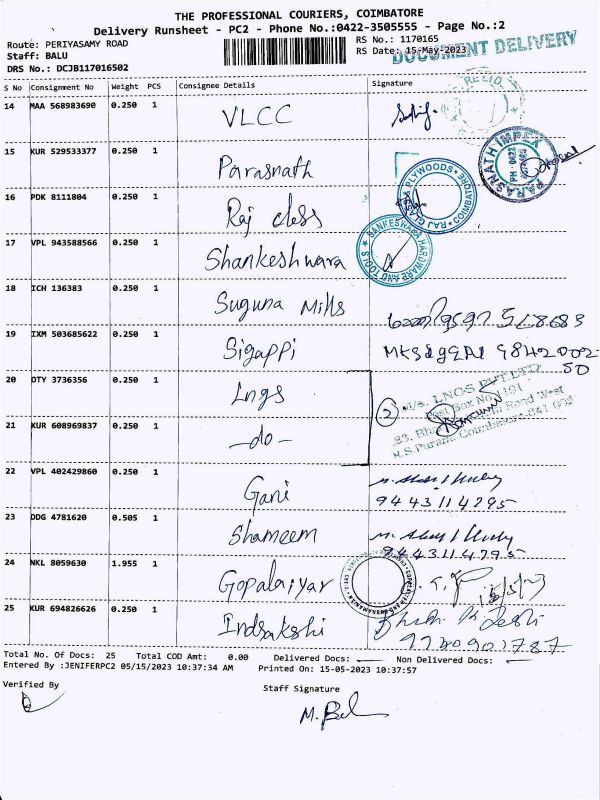 THE PROFESSIONAL COURIERS, COIMBATORE
Delivery Runsheet - PC2 - Phone No.:0422-3505555 - Page No.:2
Route: PERIYASAMY ROAD
Staff: BALU
DRS No.: DCJB117016502
RS No.: 1170165
RS Date: 15-May-2023
DOCUMENT DELIVERY
S No Consignment No Weight PCS Consignee Details Signature
14 MAA 568983690 0.250 1 VLCC
15 KUR 529533377 0.250 1 Parasnath
PARASNATH IMPEX
PH 0422
16 PDK 8111804 0.250 1 Raj class
RAJ CLASS PLYWOODS COIMBATORE
17 VPL 943588566 0.250 1 Shankeshwara
SANKESWARA HARDWARE AND TOOLS
18 ICH 136383 0.250 1 Suguna Mills
19 IXM 503685622 0.250 1 Sigappi
9842002-
50
20 OTY 3736356 0.250 1 Lngs
2
M/s. LNGS PVT LTD
Post Box No. 1191
Road West
R.S. Puram, Coimbatore-641 002
21 KUR 608969837 0.250 1 -do-
22 VPL 402429860 0.250 1 Gani
9443114295
23 DDG 4781620 0.505 1 Shameem
9443114295
24 NKL 8059630 1.955 1 Gopalaiyar
15/5/23
25 KUR 694826626 0.250 1 Indsakshi
Total No. Of Docs: 25 Total COD Amt: 0.00 Delivered Docs: Non Delivered Docs:
Entered By :JENIFERPC2 05/15/2023 10:37:34 AM Printed On: 15-05-2023 10:37:57
Verified By
Staff Signature
M. Bal